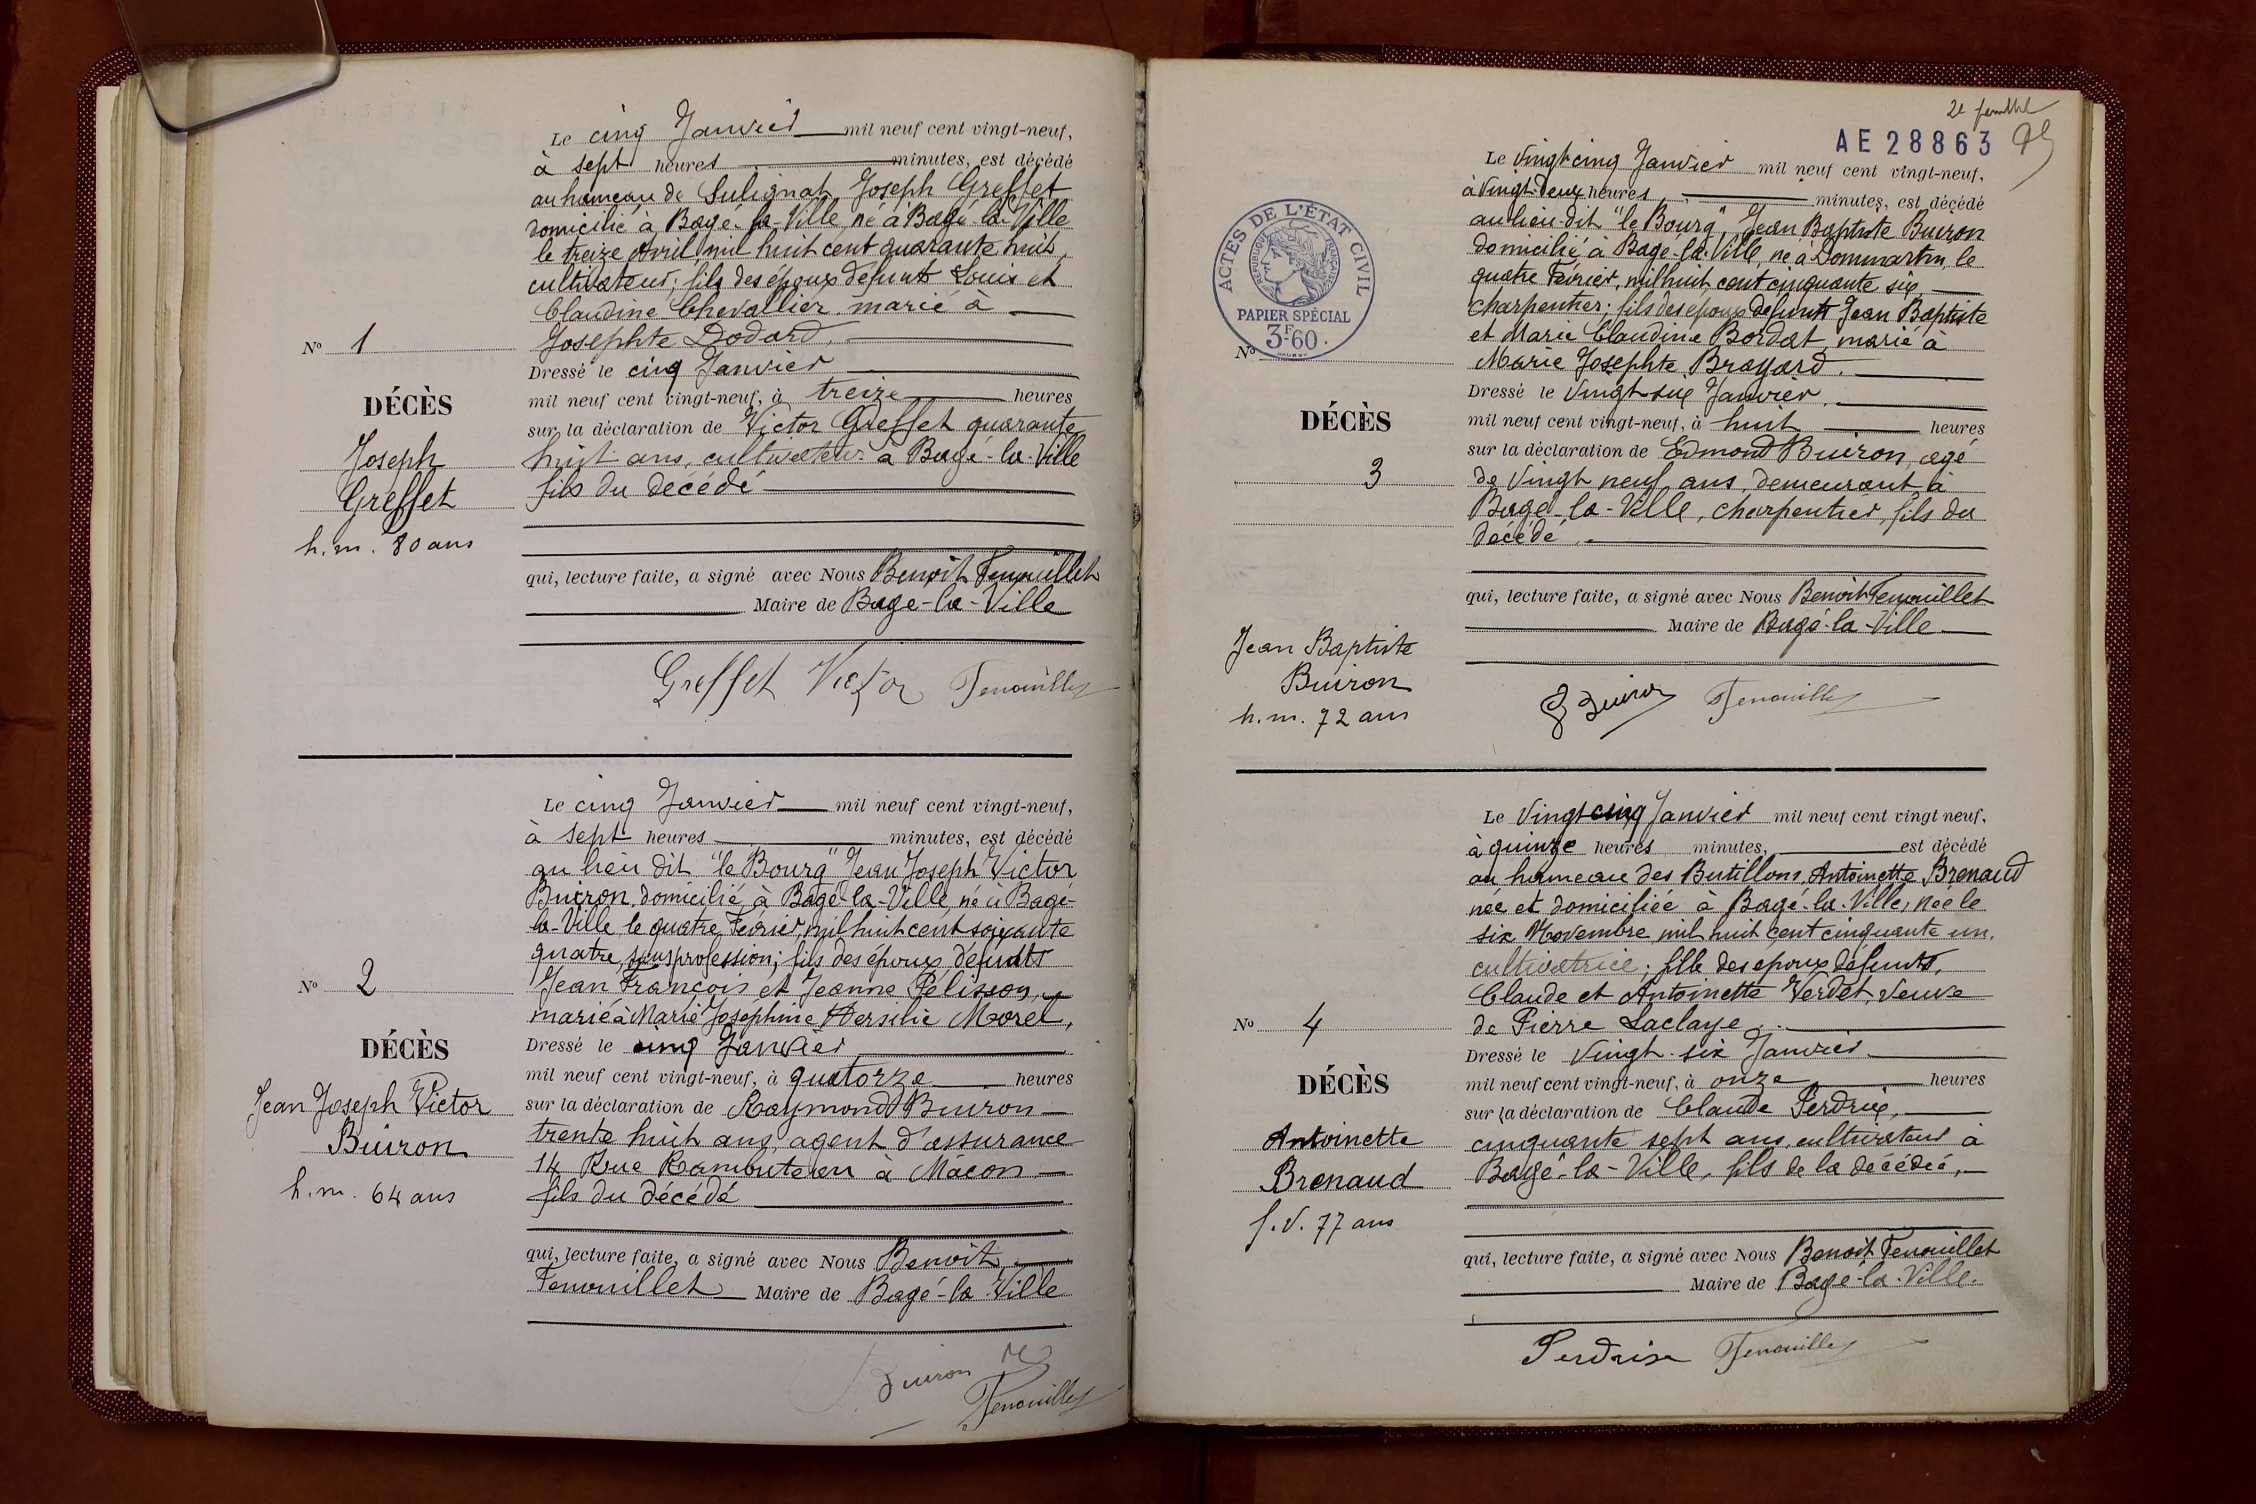 Le cinq Janvier mil neuf cent vingt-neuf,
à sept heures minutes, est décédé
au hameau de Sulignat Joseph Greffet
domicilié à Bagé-la-Ville, né à Bagé-la-Ville
le treize Avril mil huit cent quarante huit,
cultivateur; fils des époux défunts Louis et
Claudine Chevallier marié à
Josephte Dodard,
Dressé le cinq Janvier
mil neuf cent vingt-neuf, à treize heures
sur la déclaration de Victor Greffet quarante
huit ans, cultivateur à Bagé-la-Ville
fils du décédé
qui, lecture faite, a signé avec Nous Benoit Fenouillet
Maire de Bagé-la-Ville
Greffet Victor Fenouillet
No 1
DÉCÈS
Joseph
Greffet
h.m. 80 ans
Le cinq Janvier mil neuf cent vingt-neuf,
à sept heures minutes, est décédé
au lieu dit "le Bourg" Jean Joseph Victor
Buiron domicilié à Bagé-la-Ville, né à Bagé-
la-Ville le quatre Février mil huit cent soixante
quatre, sans profession; fils des époux défunts
Jean François et Jeanne Pelisson,
marié à Marie Josephine Hersilie Morel,
Dressé le cinq Janvier
mil neuf cent vingt-neuf, à quatorze heures
sur la déclaration de Raymond Buiron
trente huit ans, agent d'assurance
14 Rue Rambuteau à Mâcon
fils du décédé
qui, lecture faite, a signé avec Nous Benoit
Fenouillet Maire de Bagé-la-Ville
Buiron
Fenouillet
No 2
DÉCÈS
Jean Joseph Victor
Buiron
h.m. 64 ans
2e feuillet
AE 28863
ACTES DE L'ÉTAT CIVIL
RÉPUBLIQUE FRANÇAISE
PAPIER SPÉCIAL
3F60.
Le vingt cinq Janvier mil neuf cent vingt-neuf,
à vingt-deux heures minutes, est décédé
au lieu-dit "le Bourg", Jean Baptiste Buiron
domicilié à Bagé-la-Ville, né à Dommartin, le
quatre Février, mil huit cent cinquante six,
charpentier; fils des époux défunts Jean Baptiste
et Marie Claudine Bordat, marié à
Marie Josephte Brayard.
Dressé le vingt-six Janvier,
mil neuf cent vingt-neuf, à huit heures
sur la déclaration de Edmond Buiron, agé
de vingt neuf ans, demeurant à
Bagé-la-Ville, charpentier, fils du
décédé.
qui, lecture faite, a signé avec Nous Benoit Fenouillet
Maire de Bagé-la-Ville
E Buiron Fenouillet
No
DÉCÈS
3
Jean Baptiste
Buiron
h.m. 72 ans
Le vingt cinq Janvier mil neuf cent vingt neuf,
à quinze heures minutes, est décédé
au hameau des Butillons, Antoinette Brenaud
née et domiciliée à Bagé-la-Ville, née le
six Novembre mil huit cent cinquante un,
cultivatrice; fille des époux défunts,
Claude et Antoinette Verdet, veuve
de Pierre Laclaye.
Dressé le vingt-six Janvier
mil neuf cent vingt-neuf, à onze heures
sur la déclaration de Claude Perdrix,
cinquante sept ans, cultivateur à
Bagé-la-Ville, fils de la décédée,
qui, lecture faite, a signé avec Nous Benoit Fenouillet
Maire de Bagé-la-Ville.
Perdrix Fenouillet
No 4
DÉCÈS
Antoinette
Brenaud
f.v. 77 ans